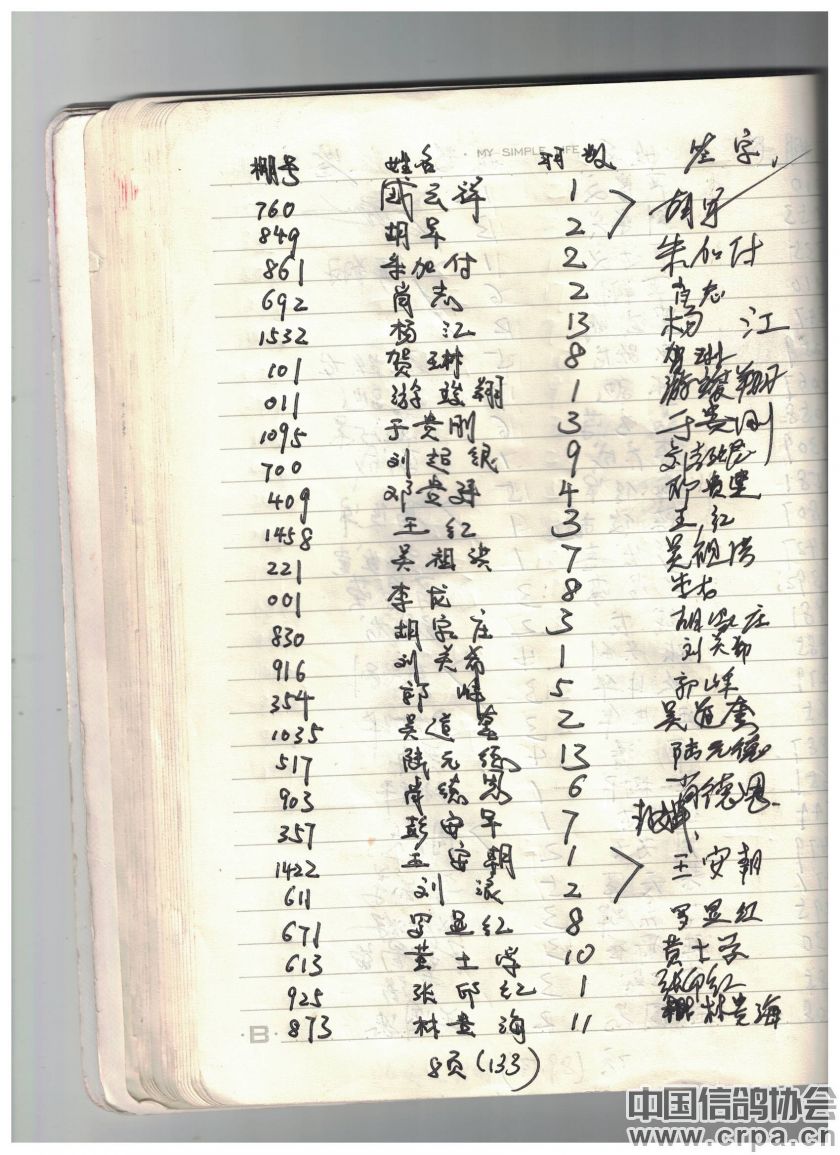 MY SIMPLE LIFE
棚号 姓名 羽数 签字
760 戚云祥 1
849 胡军 2 胡军
861 朱加付 2 朱加付
692 肖志 2 肖志
1532 杨江 13 杨江
101 贺琳 8 贺琳
011 游竣翔 1 游竣翔
1095 于贵刚 3 于贵刚
700 刘超银 9
409 邓贵 4 邓贵
1458 王红 3 王红
221 吴祖洪 7 吴祖洪
001 李龙 8
830 胡家庄 3 胡家庄
916 刘英 1 刘英
354 郭峰 5 郭峰
1035 吴道奎 2 吴道奎
517 陆元德 13 陆元德
903 肖德恩 6 肖德恩
357 彭安早 7
1422 王安朝 1 王安朝
611 刘波 2
671 罗显红 8 罗显红
613 黄士学 10 黄士学
925 张邱红 1 张邱红
873 林贵海 11 林贵海
B
8页(133)
中国信鸽协会
www.crpa.cn